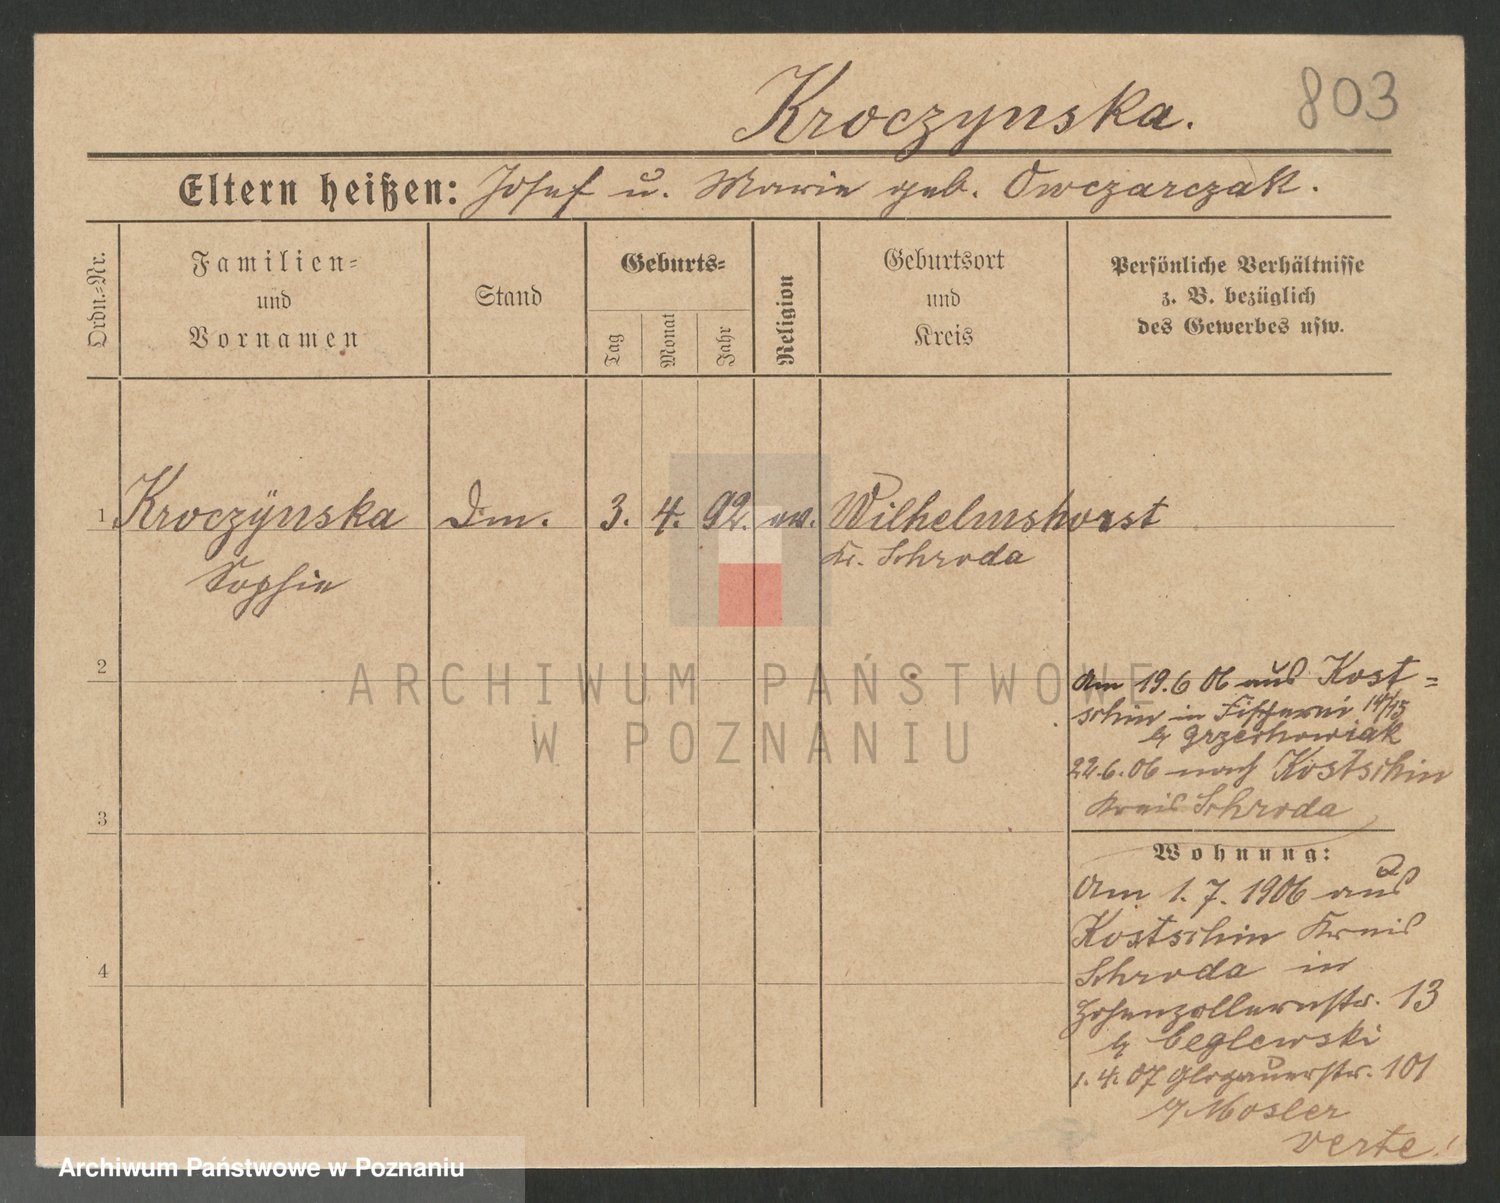 Kroczynska.
803
Eltern heißen: Josef u. Marie geb. Owczarczak.
Ordn.-Nr.
Familien-
und
Vornamen
Stand
Geburts-
Tag
Monat
Jahr
Religion
Geburtsort
und
Kreis
Persönliche Verhältnisse
z. B. bezüglich
des Gewerbes usw.
1 Kroczÿnska Dm. 3. 4. 92. ev. Wilhelmshorst
Sophie
Kr. Schroda
2
3
4
Am 19.6 06 aus Kost=
schin in Fischerei 14/15
b/ Grzechowiak
22.6.06 nach Kostschin
Kreis Schroda
Wohnung:
Am 1. 7. 1906 aus
Kostschin Kreis
Schroda in
Hohenzollernstr. 13
b/ Ceglewski
1. 4. 07 Glogauerstr. 101
b/ Mosler
verte!
ARCHIWUM PAŃSTWOWE
W POZNANIU
Archiwum Państwowe w Poznaniu